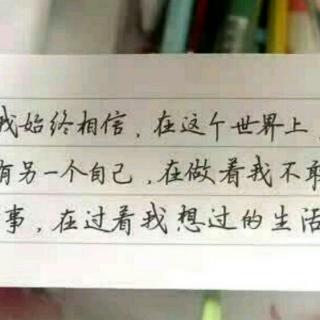 我始终相信，在这个世界上，
有另一个自己，在做着我不敢
事，在过着我想过的生活